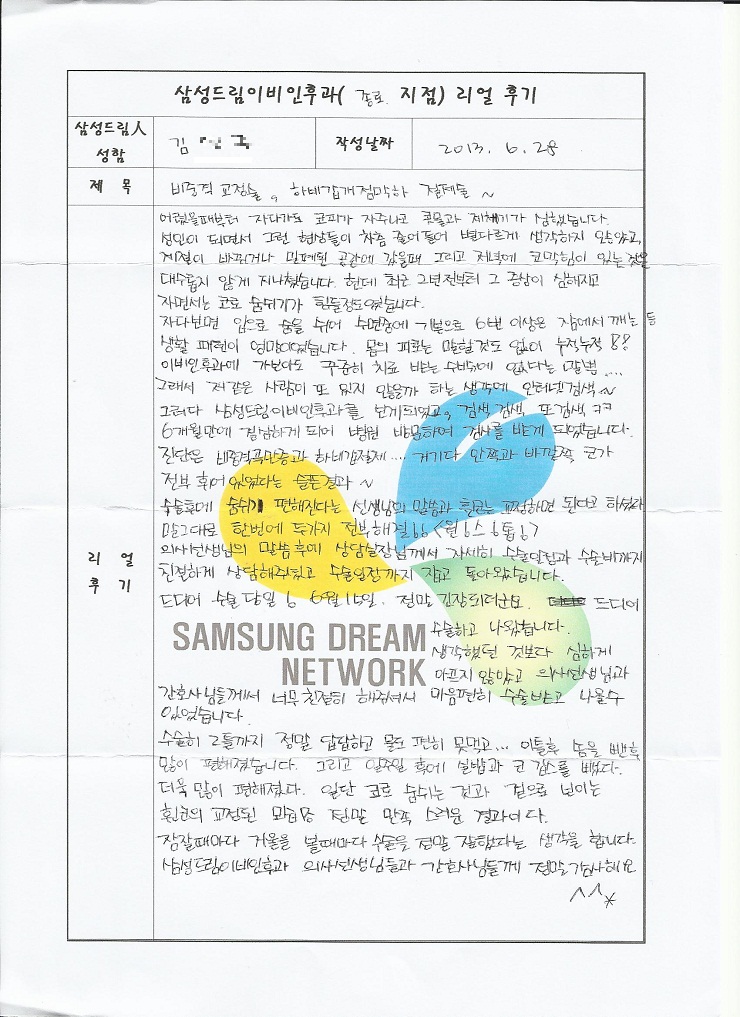 삼성드림이비인후과( 종로 지점) 리얼 후기
삼성드림人 성함
김
작성날짜
2013. 6. 28
제 목
비중격 교정술, 하비갑개점막하 절제술 ~
리 얼 후 기
어렸을때부터 자다가도 코피가 자주나고 콧물과 재채기가 심했습니다.
성인이 되면서 그런 현상들이 차츰 줄어들어 별다르게 생각하지 않았고,
계절이 바뀌거나 밀폐된 공간에 갔을때 그리고 저녁에 코막힘이 있는것을
대수롭지 않게 지나쳤습니다. 헌데 최근 2년전부터 그 증상이 심해지고
자면서는 코로 숨쉬기가 힘들정도였습니다.
자다보면 입으로 숨을 쉬어 수면중에 기본으로 6번 이상은 잠에서 깨는 등
생활 패턴이 엉망이었습니다. 몸의 피로는 말할것도 없이 누적누적 !!
이비인후과에 가보아도 꾸준히 치료 받는 수밖에 없다는 말뿐 ...
그래서 저같은 사람이 또 있지 않을까 하는 생각에 인터넷검색 ~
그러다 삼성드림이비인후과를 보게되었고, 검색 검색, 또검색, ㅋㅋ
6개월만에 결심하게 되어 병원 방문하여 검사를 받게 되었습니다.
진단은 비중격곡만증과 하비갑절제 ... 거기다 안쪽과 바깥쪽 코가
전부 휘어 있었다는 슬픈결과 ~
수술후에 숨쉬기 편해진다는 선생님의 말씀과 휜코는 교정하면 된다고 하셨다
말그대로 한번에 두가지 전부해결!! <원!스!톱!>
의사선생님의 말씀후에 상담실장님께서 자세히 수술일정과 수술비까지
친절하게 상담해주셨고 수술일정까지 잡고 돌아왔습니다.
드디어 수술 당일 ! 6월 15일. 정말 긴장되더군요. 드디어
수술하고 나왔습니다.
생각했던 것보다 심하게
SAMSUNG DREAM
NETWORK
아프지 않았고 의사선생님과
간호사님들께서 너무 친절히 해주셔서 마음편히 수술받고 나올수
있었습니다.
수술히 2틀까지 정말 답답하고 물도 편히 못먹고... 이틀후 솜을 뺀후
많이 편해졌습니다. 그리고 일주일 후에 실밥과 코 깁스를 뺐다.
더욱 많이 편해졌다. 일단 코로 숨쉬는 것과 겉으로 보이는
휜코의 교정된 모습등 정말 만족 스러운 결과이다.
잠잘때마다 거울을 볼때마다 수술을 정말 잘했다는 생각을 합니다.
삼성드림이비인후과 의사선생님들과 간호사님들께 정말감사해요
^^*